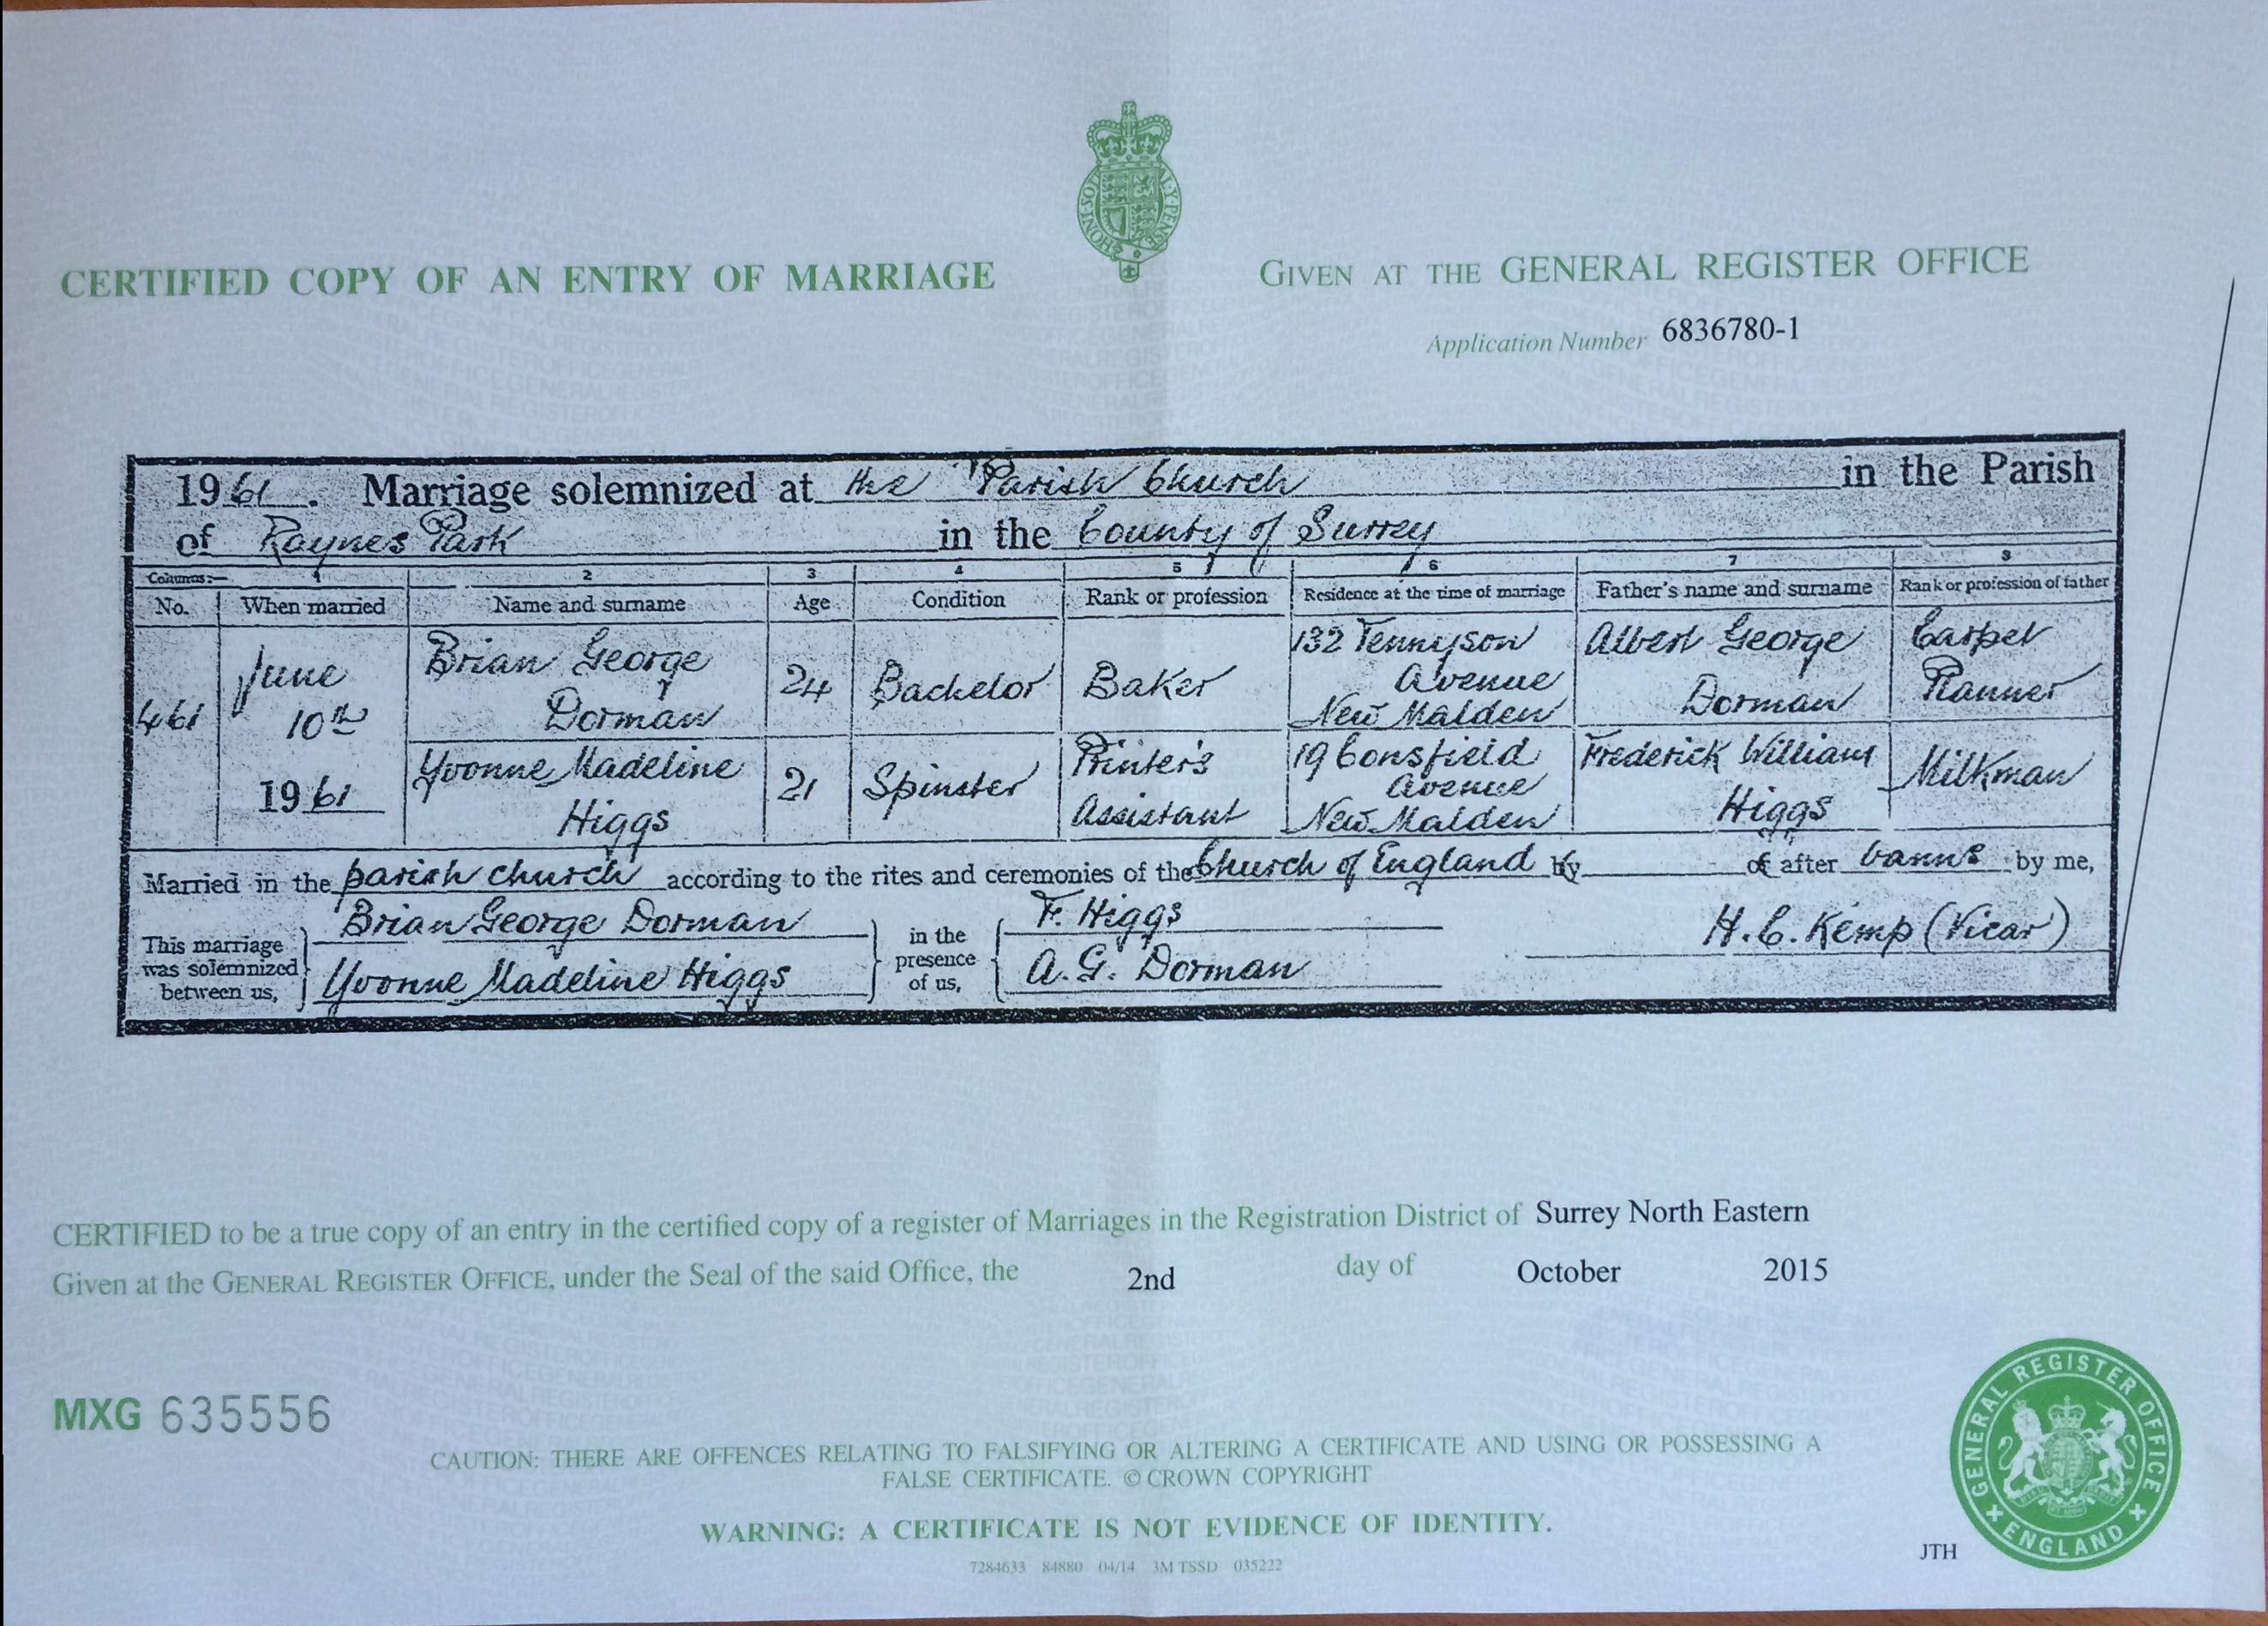 HONI·SOI AL·Y·PENSE
CERTIFIED COPY OF AN ENTRY OF MARRIAGE
GIVEN AT THE GENERAL REGISTER OFFICE
Application Number 6836780-1
1961. Marriage solemnized at the Parish Church in the Parish
of Raynes Park in the County of Surrey
Columns:— 1 2 3 4 5 6 7 8
No. When married Name and surname Age Condition Rank or profession Residence at the time of marriage Father's name and surname Rank or profession of father
461 June 10th 1961
Brian George Dorman 24 Bachelor Baker 132 Tennyson Avenue New Malden Albert George Dorman Carpet Planner
Yvonne Madeline Higgs 21 Spinster Printer's Assistant 19 Consfield Avenue New Malden Frederick William Higgs Milkman
Married in the parish church according to the rites and ceremonies of the Church of England by or after banns by me,
This marriage was solemnized between us,
Brian George Dorman
Yvonne Madeline Higgs
in the presence of us,
F. Higgs
A. G. Dorman
H. C. Kemp (Vicar)
CERTIFIED to be a true copy of an entry in the certified copy of a register of Marriages in the Registration District of Surrey North Eastern
Given at the GENERAL REGISTER OFFICE, under the Seal of the said Office, the 2nd day of October 2015
MXG 635556
CAUTION: THERE ARE OFFENCES RELATING TO FALSIFYING OR ALTERING A CERTIFICATE AND USING OR POSSESSING A
FALSE CERTIFICATE. © CROWN COPYRIGHT
WARNING: A CERTIFICATE IS NOT EVIDENCE OF IDENTITY.
7284633 84880 04/14 3M TSSD 035222
JTH
GENERAL REGISTER OFFICE
ENGLAND